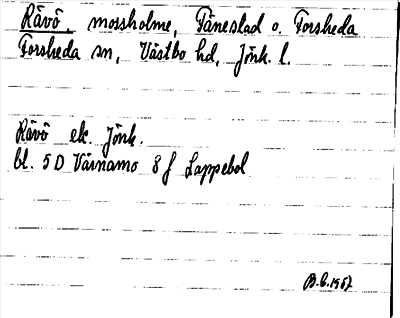 Rävö, mossholme, Tånestad o. Forsheda
Forsheda sn, Västbo hd, Jönk. l.
Rävö ek Jönk.
bl. 5 D Värnamo 8 f Lappebol
B.C. 1967